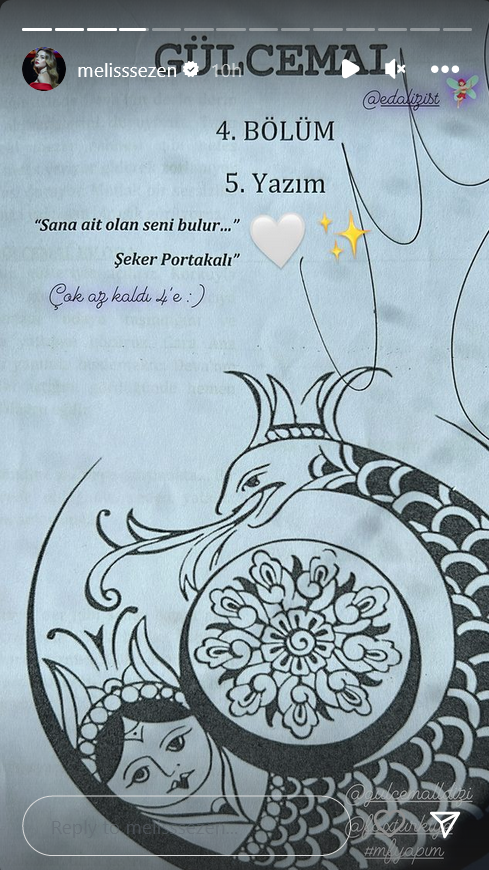 GÜLCEMAL
melisssezen 10h
@edalizist
4. BÖLÜM
5. Yazım
“Sana ait olan seni bulur...”
Şeker Portakalı”
Çok az kaldı 4'e :)
@gulcemaldizi
Reply to melisssezen...
@foxturkiye
#mfyapım